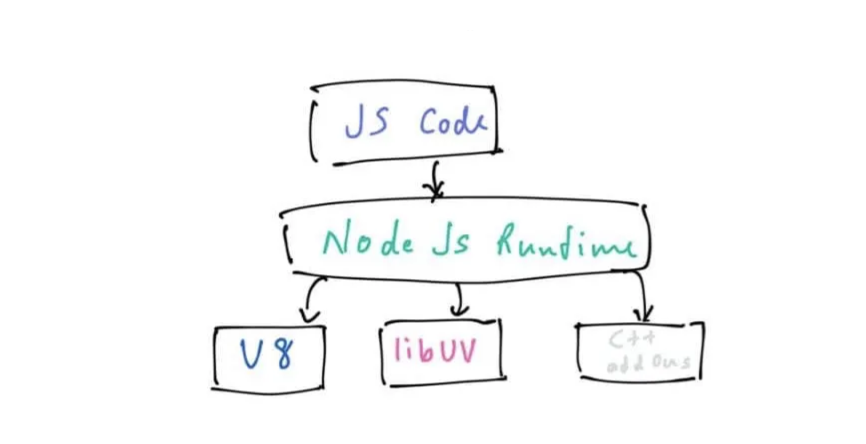 JS Code
Node Js Runtime
V8
libUV
C++
addOns